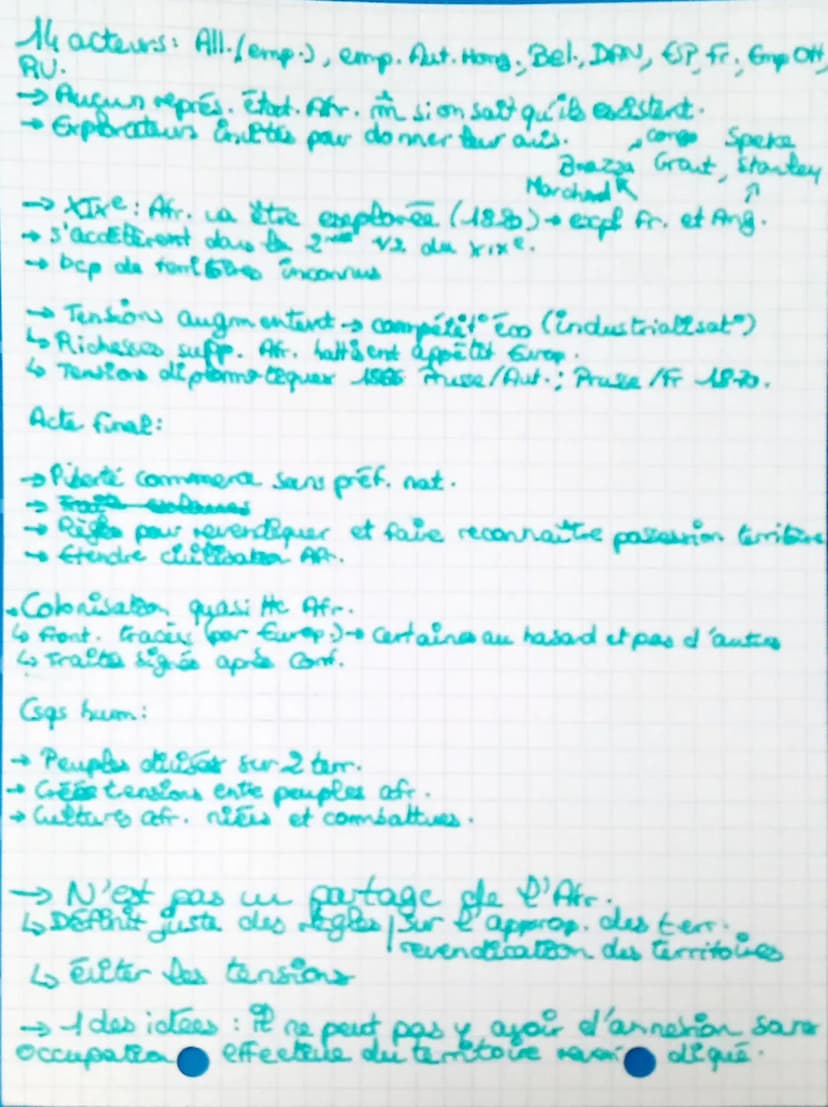 14 acteurs: All.(emp.), emp. Aut. Hong, Bel., DAN, ESP, Fr., Emp Ott,
RU.
→ Aucun représ. État. Afr. m̂ si on sait qu'ils existent.
→ Explorateurs invités pour donner leur avis.
Congo Speke
Brazza Grant, Stanley
Marchand
→ XIXe: Afr. va être explorée (1880) → expl Fr. et Ang.
→ s'accélèrent dans la 2nde 1/2 du XIXe.
→ bcp de territoires inconnus
→ Tensions augmentent → compétit° Éco (industrialisat°)
↳ Richesses supp. Afr. attisent appétit Europ.
↳ Tensions diplomatiques 1866 Prusse/Aut.; Prusse/Fr 1870.
Acte final:
→ Liberté commerce sans préf. nat.
→
→ Règles pour revendiquer et faire reconnaître possession territoire
→ Étendre civilisation Afr.
→ Colonisation quasi tte Afr.
↳ Front. tracées (par Europ.) → certaines au hasard et pas d'autres
↳ Traités signés après Conf.
Csqs hum:
→ Peuples divisés sur 2 terr.
→ Crée tensions entre peuples afr.
→ Cultures afr. niées et combattues.
→ N'est pas un partage de l'Afr.
↳ Définit juste des règles | sur l'approp. des terr.
revendication des territoires
↳ éviter les tensions
→ 1 des idées : il ne peut pas y avoir d'annexion sans
occupation effective du territoire revendiqué.